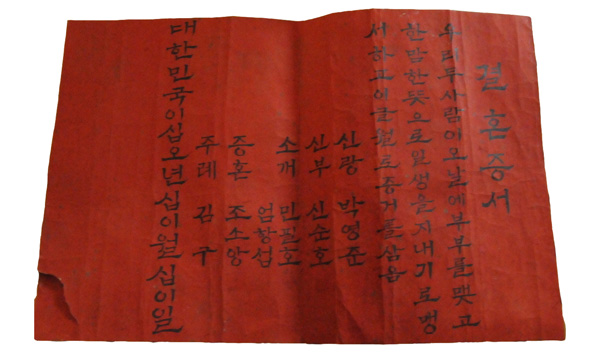 결혼증서
우리두사람이오날에부부를맺고
한맘한뜻으로일생을지내기로맹
서하고이글월로증거를삼음
신랑 박영준
신부 신순호
소개 민필호
엄항섭
증혼 조소앙
주례 김구
대한민국이십오년십이월십이일